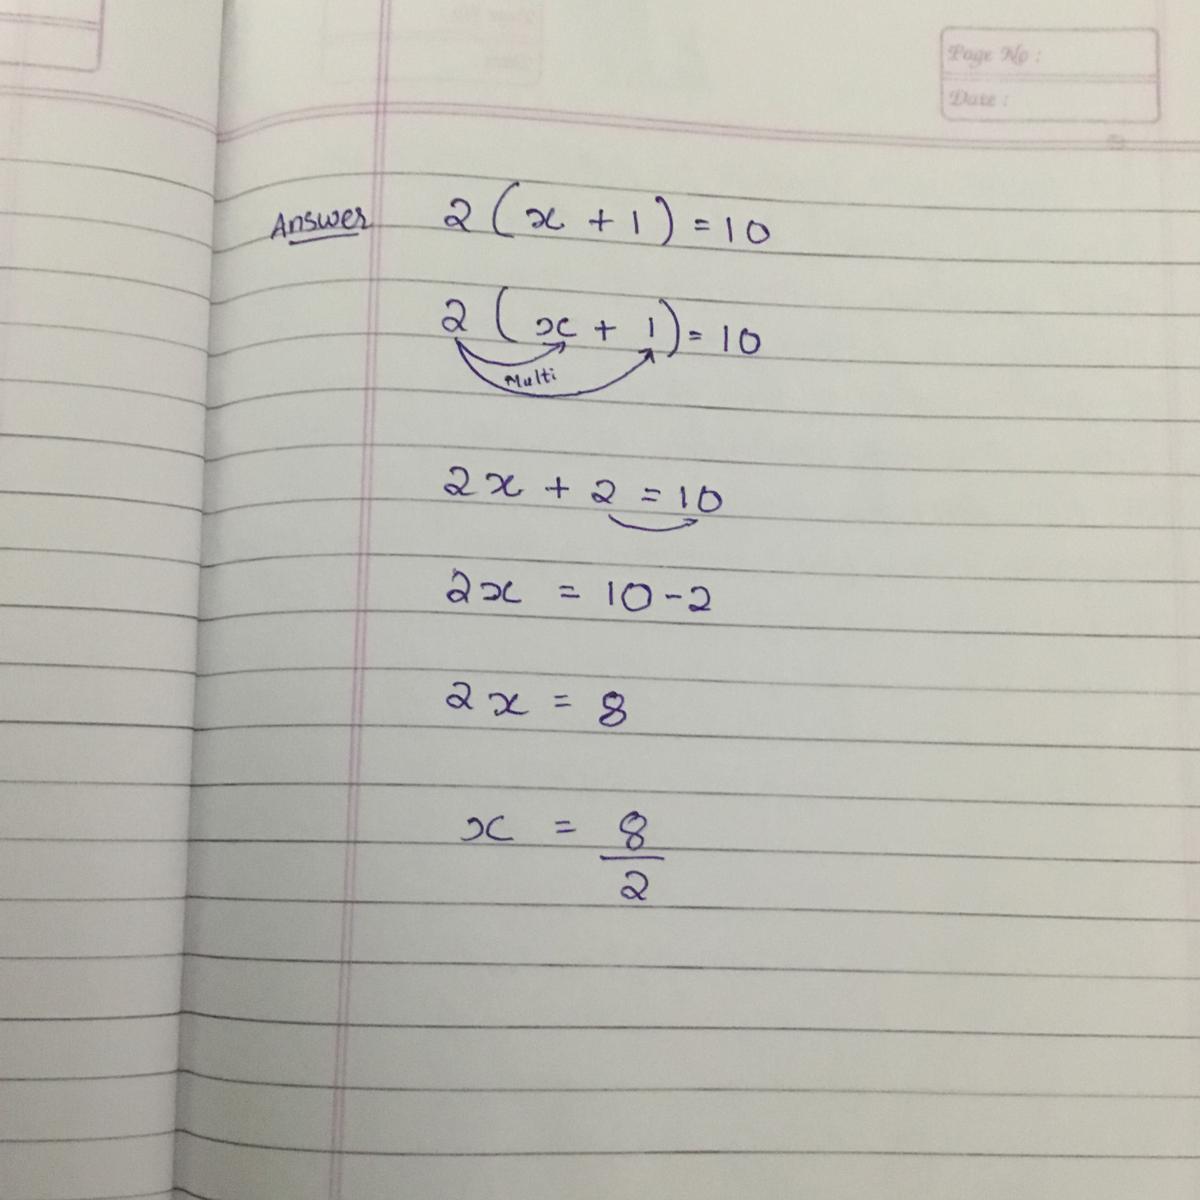 Page No :
Date :
Answer 2 ( x + 1 ) = 10
2 ( x + 1 ) = 10
Multi
2x + 2 = 10
2x = 10 - 2
2x = 8
x = 8
2